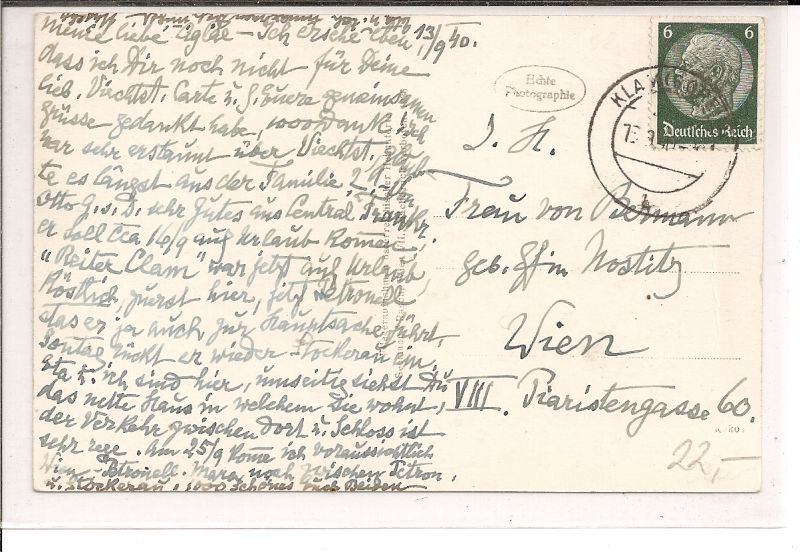 13/9 40.
Meine liebe Eglse – Ich ersehe eben,
dass ich Dir noch nicht für Deine
lieb. Viechtst. Carte u. f. Euere gemeinsamen
Grüsse gedankt habe, 1000 Dank. Ich
war sehr erstaunt über Viechtst.
te es längst aus der Familie
Otto G. s. D. sehr Gutes aus Central Frankr.
er soll Cca 16/9 auf Urlaub komen
"Reiter Clam" war jetzt auf Urlaub,
Köstlich, zuerst hier, jetzt Petronell
das er ja auch zur Hauptsache führt,
Sontag rückt er wieder Stockerau ein,
Eta u. ich sind hier, umseitig siehst Du
das nette Haus in welchem Sie wohnt,
der Verkehr zwischen Dort u. Schloss ist
sehr rege. Am 25/9 kome ich voraussichtlich
Wien – Petronell. noch zwischen Petron.
u. Stockerau. 1000 Schönes Euch Beiden
Echte
Photographie
6 6
Deutsches Reich
KLAGENFURT
I. H.
Frau von Biermann
geb. Gfin Nostitz
Wien
VIII. Piaristengasse 60.
22,-